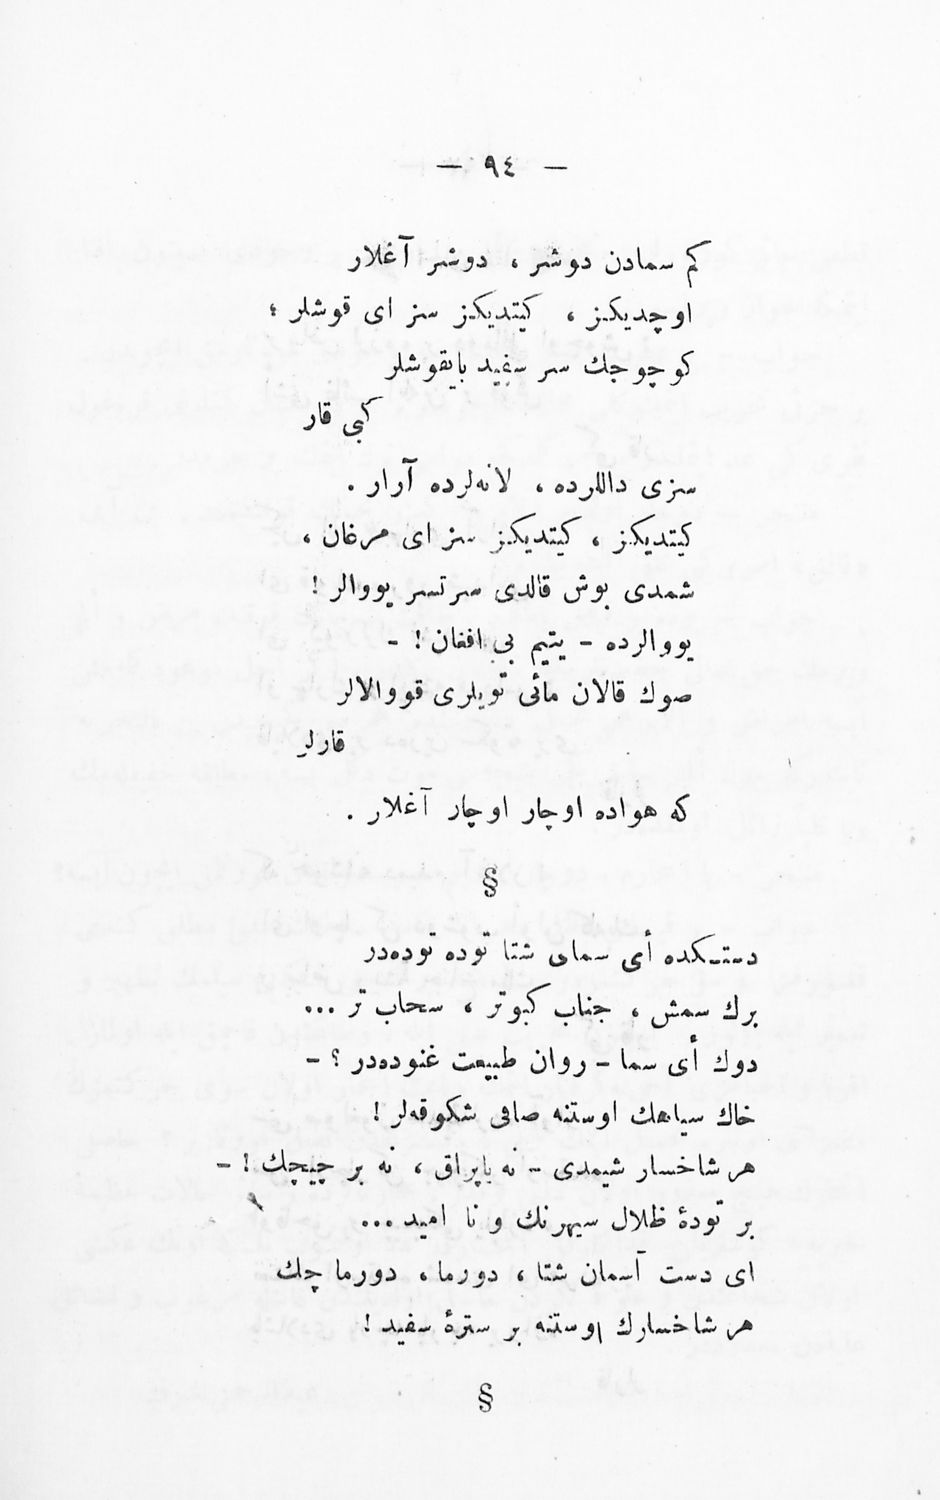 — ٩٤ —
كم سمادن دوشر ، دوشر آغلار
اوچديكز ، كيتديكز سز اى قوشلر ؛
كوچوجك سر سفيد بايقوشلر
كبى قار
سزى داللرده ، لانه‌لرده آرار .
كيتديكز ، كيتديكز سز اى مرغان ،
شمدى بوش قالدى سرتسر يووالر !
يووالرده - يتيم بى افغان ! -
صوك قالان مائى تويلرى قووالالر
قارلر
كه هواده اوچار اوچار آغلار .
§
دستـكده أى سماى شتا توده توده‌در
برك سمش ، جناب كبوتر ، سحاب تر ...
دوك أى سما - روان طبيعت غنوده‌در ؟ -
خاك سياهك اوستنه صافى شكوفه‌لر !
هر شاخسار شيمدى - نه ياپراق ، نه بر چيچك ! -
بر تودۀ ظلال سيهرنك ونا اميد ...
اى دست آسمان شتا ، دورما ، دورما چك
هر شاخسارك اوستنه بر سترۀ سفيد !
§